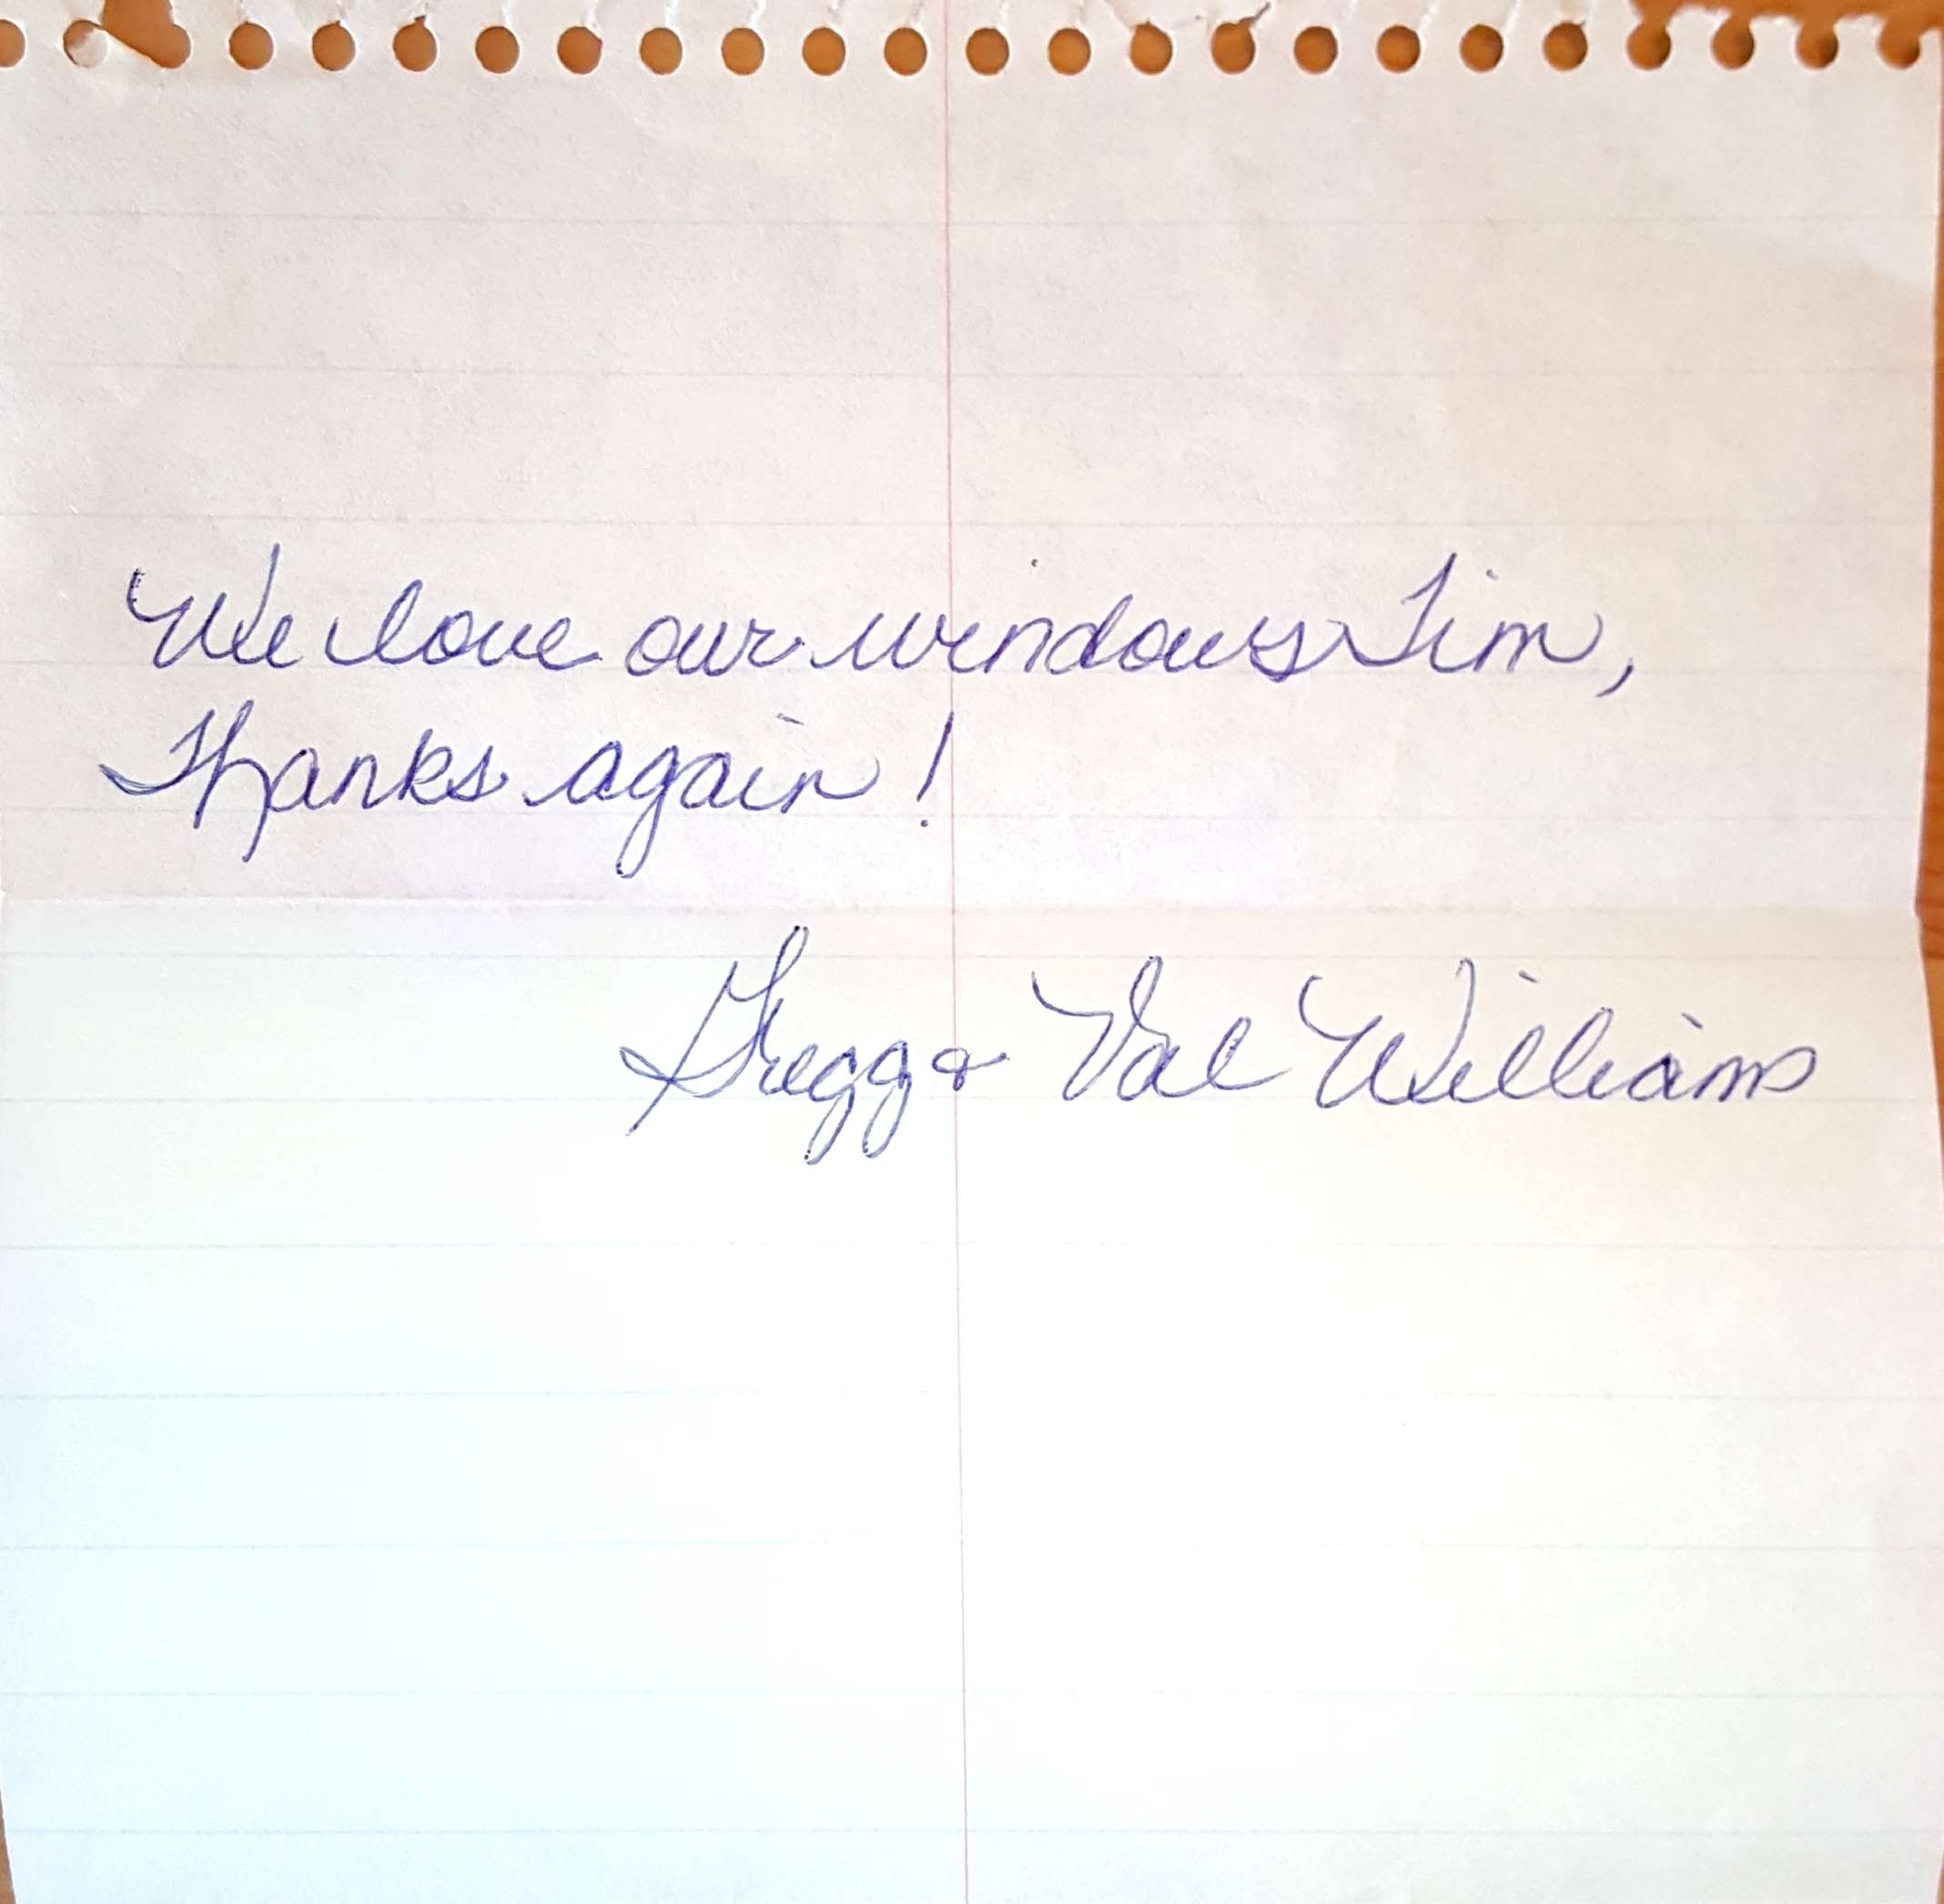 We love our windows Tim,
Thanks again!
Gregg & Val Williams